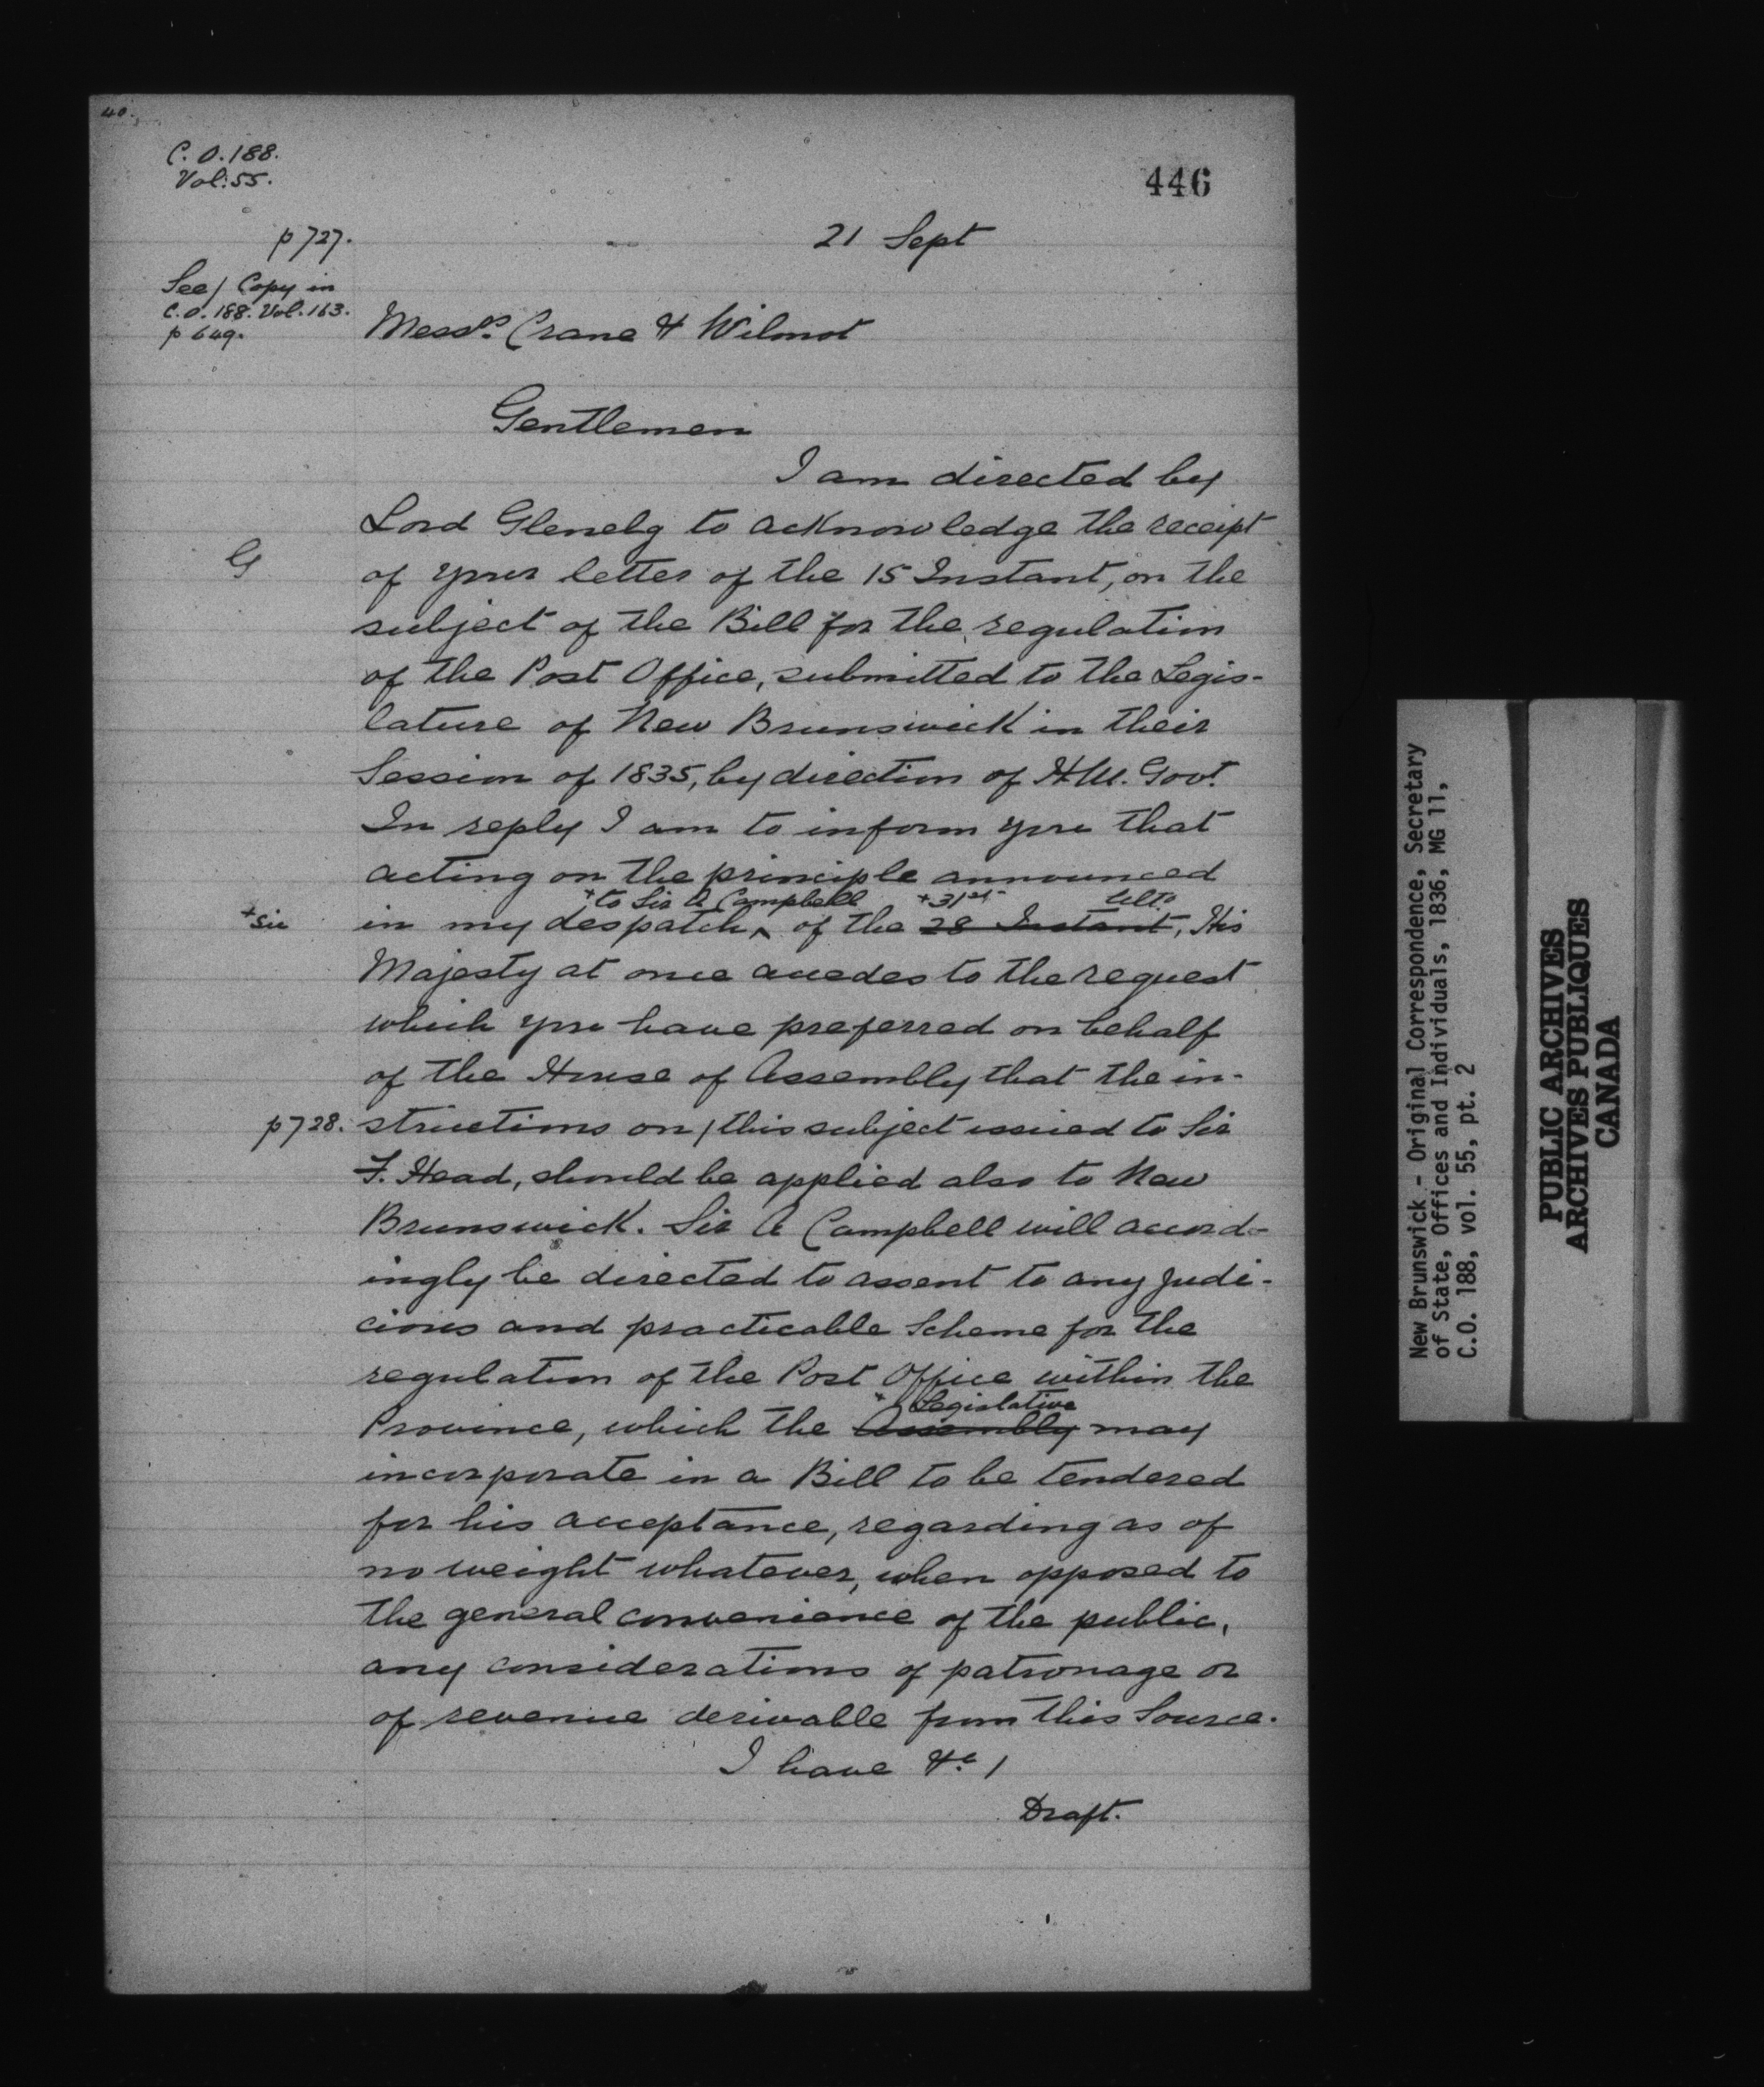 40.
C.O.188.
Vol:55.
446
p 727.
21 Sept
See/ Copy in
C.O.188. Vol.163.
p 649.
Messrs. Crane & Wilmot
Gentlemen
I am directed by
Lord Glenelg to acknowledge the receipt
G
of your letter of the 15 Instant, on the
subject of the Bill for the regulation
of the Post Office, submitted to the Legis-
lature of New Brunswick in their
Session of 1835, by direction of H.M. Govt.
In reply I am to inform you that
acting on the principle announced
+to Sir A Campbell +31st ulto
+sic
in my despatch,^ of the 28 Instant, His
Majesty at once accedes to the request
which you have preferred on behalf
of the House of Assembly that the in-
p728.
structions on / this subject issued to Sir
F. Head, should be applied also to New
Brunswick. Sir A Campbell will accord-
ingly be directed to assent to any judi-
cious and practicable Scheme for the
regulation of the Post Office within the
+ Legislative
Province, which the Assembly may
incorporate in a Bill to be tendered
for his acceptance, regarding as of
no weight whatever, when opposed to
the general convenience of the public,
any considerations of patronage or
of revenue derivable from this Source.
I have &c /
Draft.
New Brunswick - Original Correspondence, Secretary
of State, Offices and Individuals, 1836, MG 11,
C.O. 188, vol. 55, pt. 2
PUBLIC ARCHIVES
ARCHIVES PUBLIQUES
CANADA